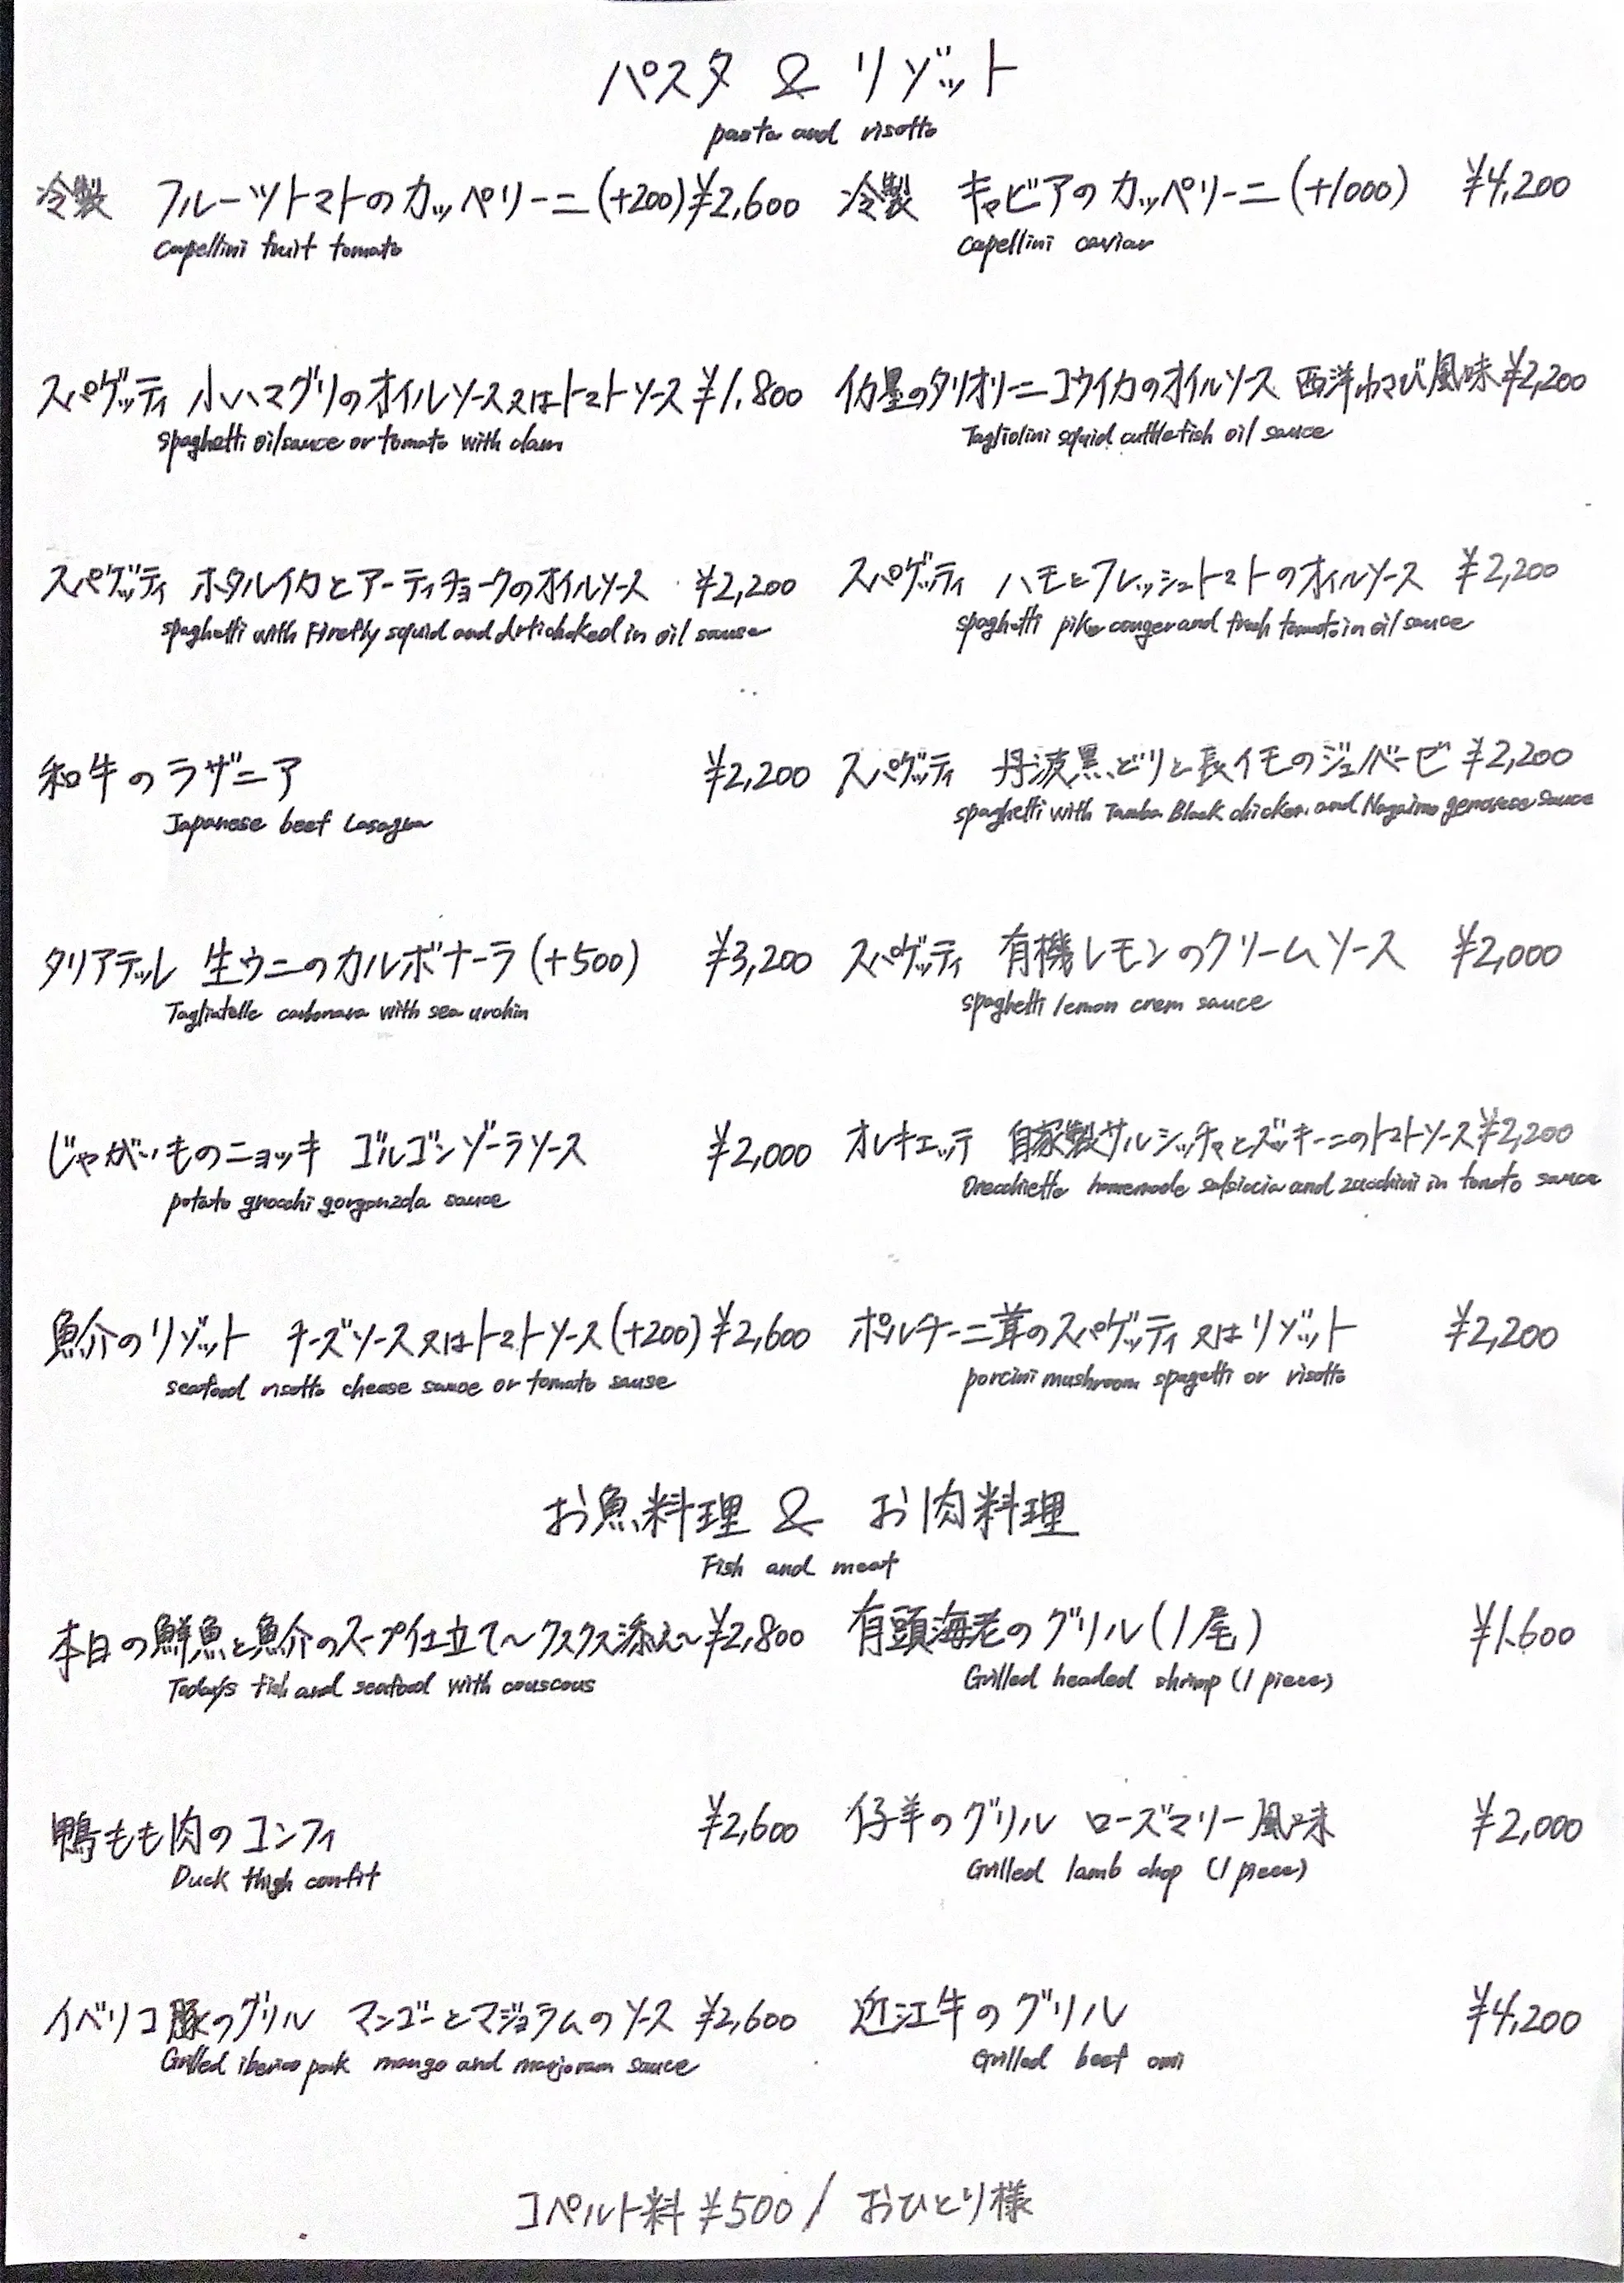 パスタ & リゾット
pasta and risotto
冷製 フルーツトマトのカッペリーニ(+200)¥2,600
capellini fruit tomato
冷製 キャビアのカッペリーニ(+1000) ¥4,200
capellini caviar
スパゲッティ 小ハマグリのオイルソース又はトマトソース ¥1,800
spaghetti oil sauce or tomato with clam
イカ墨のタリオリーニコウイカのオイルソース 西洋わさび風味¥2,200
Tagliolini squid cuttlefish oil sauce
スパゲッティ ホタルイカとアーティチョークのオイルソース ¥2,200
spaghetti with Firefly squid and Artichoked in oil sause
スパゲッティ ハモとフレッシュトマトのオイルソース ¥2,200
spaghetti pike conger and fresh tomato in oil sauce
和牛のラザニア ¥2,200
Japanese beef Lasagna
スパゲッティ 丹波黒どりと長イモのジェノベーゼ ¥2,200
spaghetti with Tamba Black chicken and Nagaimo genovese sauce
タリアテッレ 生ウニのカルボナーラ(+500) ¥3,200
Tagliatelle carbonara with sea urchin
スパゲッティ 有機レモンのクリームソース ¥2,000
spaghetti lemon crem sauce
じゃがいものニョッキ ゴルゴンゾーラソース ¥2,000
potato gnocchi gorgonzola sauce
オレキエッテ 自家製サルシッチャとズッキーニのトマトソース¥2,200
Orecchiette homemade salsiccia and zucchini in tomato sauce
魚介のリゾット チーズソース又はトマトソース(+200) ¥2,600
seafood risotto cheese sauce or tomato sause
ポルチーニ茸のスパゲッティ又はリゾット ¥2,200
porcini mushroom spagetti or risotto
お魚料理 & お肉料理
Fish and meat
本日の鮮魚と魚介のスープ仕立て〜クスクス添え〜¥2,800
Today's fish and seafood with couscous
有頭海老のグリル(1尾) ¥1,600
Grilled headed shrimp (1 piece)
鴨もも肉のコンフィ ¥2,600
Duck thigh confit
仔羊のグリル ローズマリー風味 ¥2,000
Grilled lamb chop (1 piece)
イベリコ豚のグリル マンゴーとマジョラムのソース ¥2,600
Grilled iberico pork mango and marjoram sauce
近江牛のグリル ¥4,200
Grilled beef omi
コペルト料 ¥500 / おひとり様